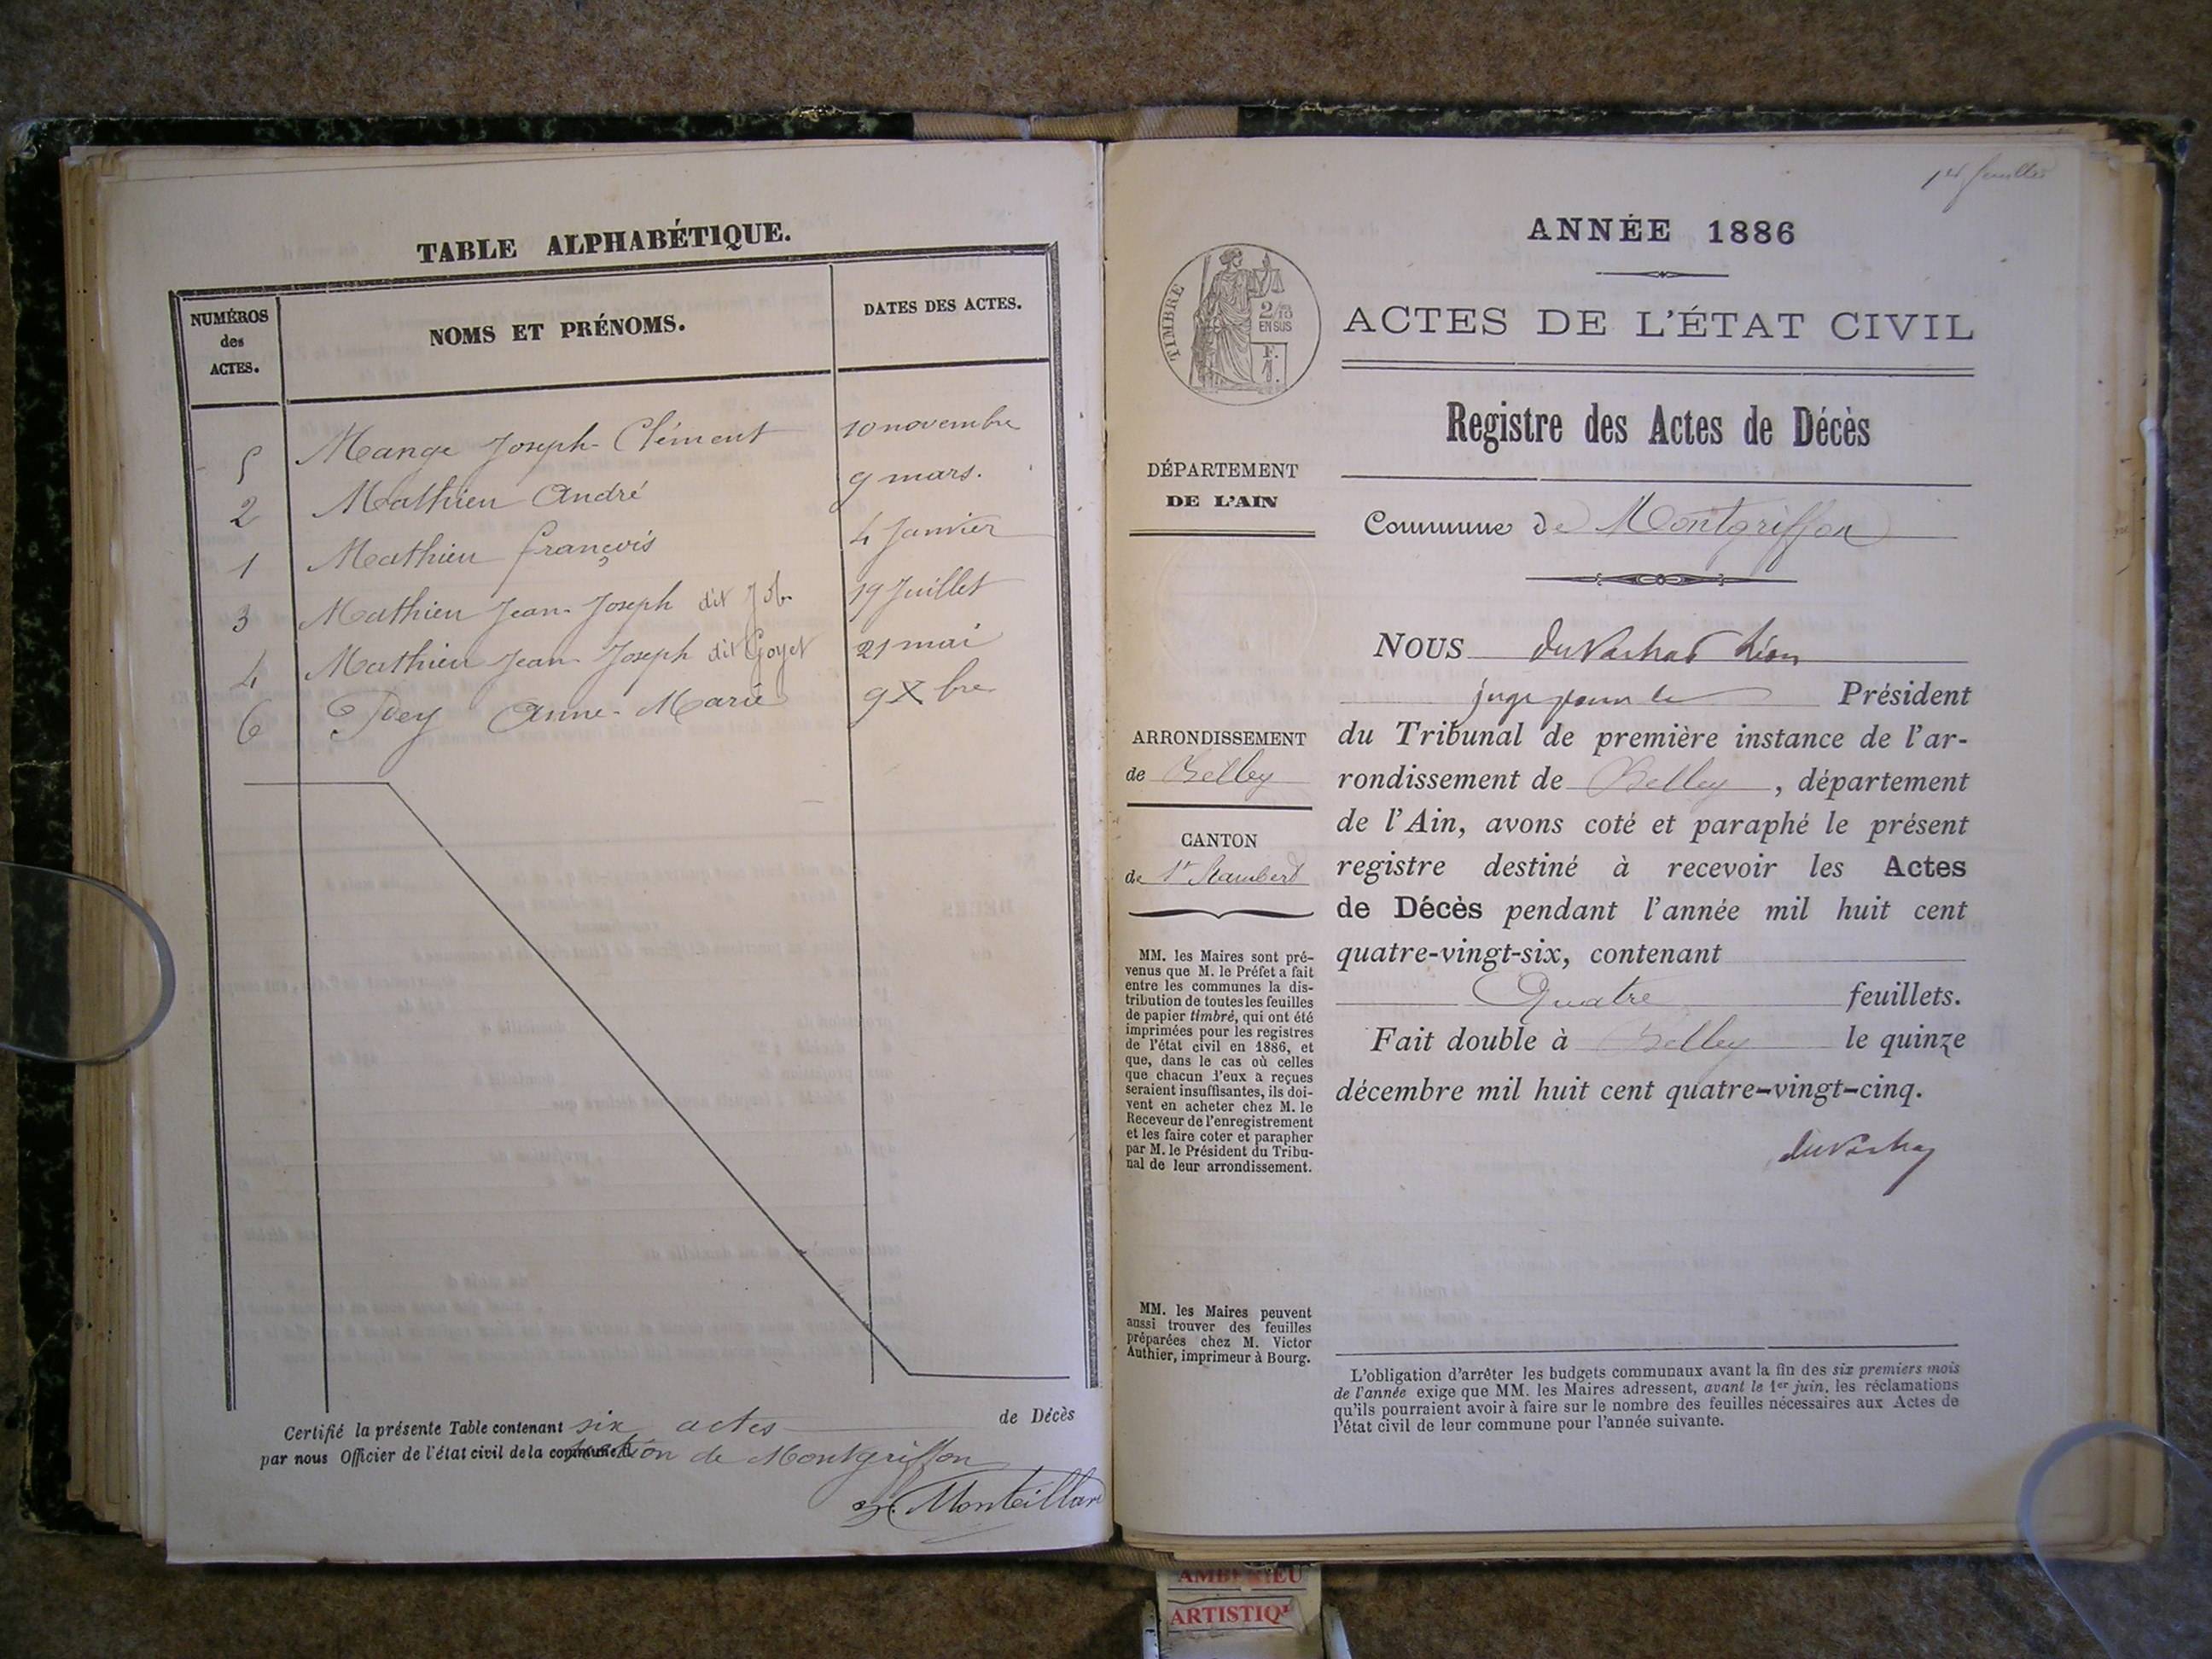 TABLE ALPHABÉTIQUE.
NUMÉROS
des
ACTES.
NOMS ET PRÉNOMS.
DATES DES ACTES.
5 Mange Joseph-Clément 10 novembre
2 Mathieu André 9 mars.
1 Mathieu françois 4 Janvier
3 Mathieu Jean-Joseph dit Job 19 Juillet
4 Mathieu Jean Joseph dit Goyet 21 mai
6 Pey Anne-Marie 9 Xbre
Certifié la présente Table contenant six actes de Décès
par nous Officier de l'état civil de la section de Montgriffon
Monteillard
14 feuilles
ANNÉE 1886
TIMBRE
2/10
EN SUS
F.
1.
ACTES DE L'ÉTAT CIVIL
Registre des Actes de Décès
DÉPARTEMENT
DE L'AIN
Commune de Montgriffon
NOUS Léon
juge pour le Président
du Tribunal de première instance de l'ar-
rondissement de Belley, département
de l'Ain, avons coté et paraphé le présent
registre destiné à recevoir les Actes
de Décès pendant l'année mil huit cent
quatre-vingt-six, contenant
Quatre feuillets.
Fait double à Belley le quinze
décembre mil huit cent quatre-vingt-cinq.
ARRONDISSEMENT
de Belley
CANTON
de St Rambert
MM. les Maires sont pré-
venus que M. le Préfet a fait
entre les communes la dis-
tribution de toutes les feuilles
de papier timbré, qui ont été
imprimées pour les registres
de l'état civil en 1886, et
que, dans le cas où celles
que chacun d'eux a reçues
seraient insuffisantes, ils doi-
vent en acheter chez M. le
Receveur de l'enregistrement
et les faire coter et parapher
par M. le Président du Tribu-
nal de leur arrondissement.
MM. les Maires peuvent
aussi trouver des feuilles
préparées chez M. Victor
Authier, imprimeur à Bourg.
L'obligation d'arrêter les budgets communaux avant la fin des six premiers mois
de l'année exige que MM. les Maires adressent, avant le 1er juin, les réclamations
qu'ils pourraient avoir à faire sur le nombre des feuilles nécessaires aux Actes de
l'état civil de leur commune pour l'année suivante.
AMBERIEU
ARTISTIQ